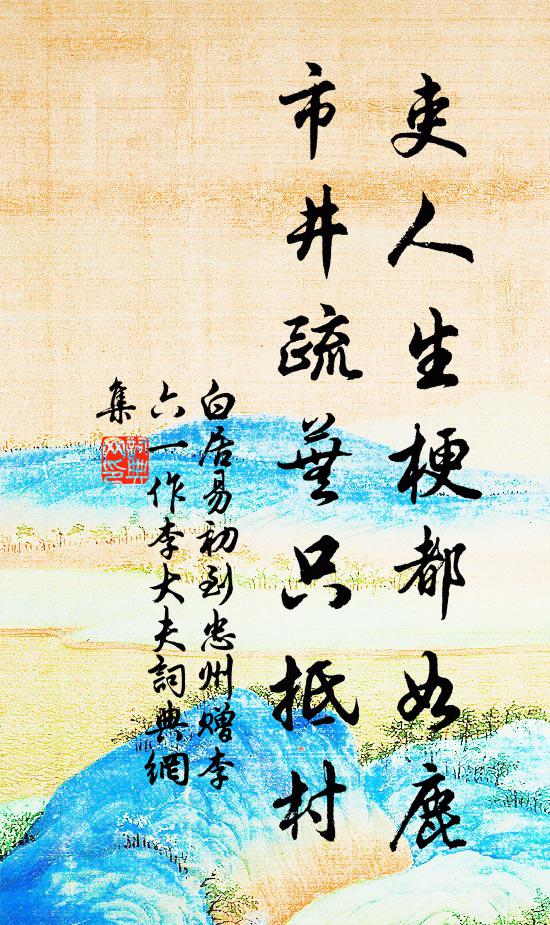 吏人生梗都如鹿
市井疏蕪只抵村
白居易初到忠州贈李
六一作李大夫詞典網
集